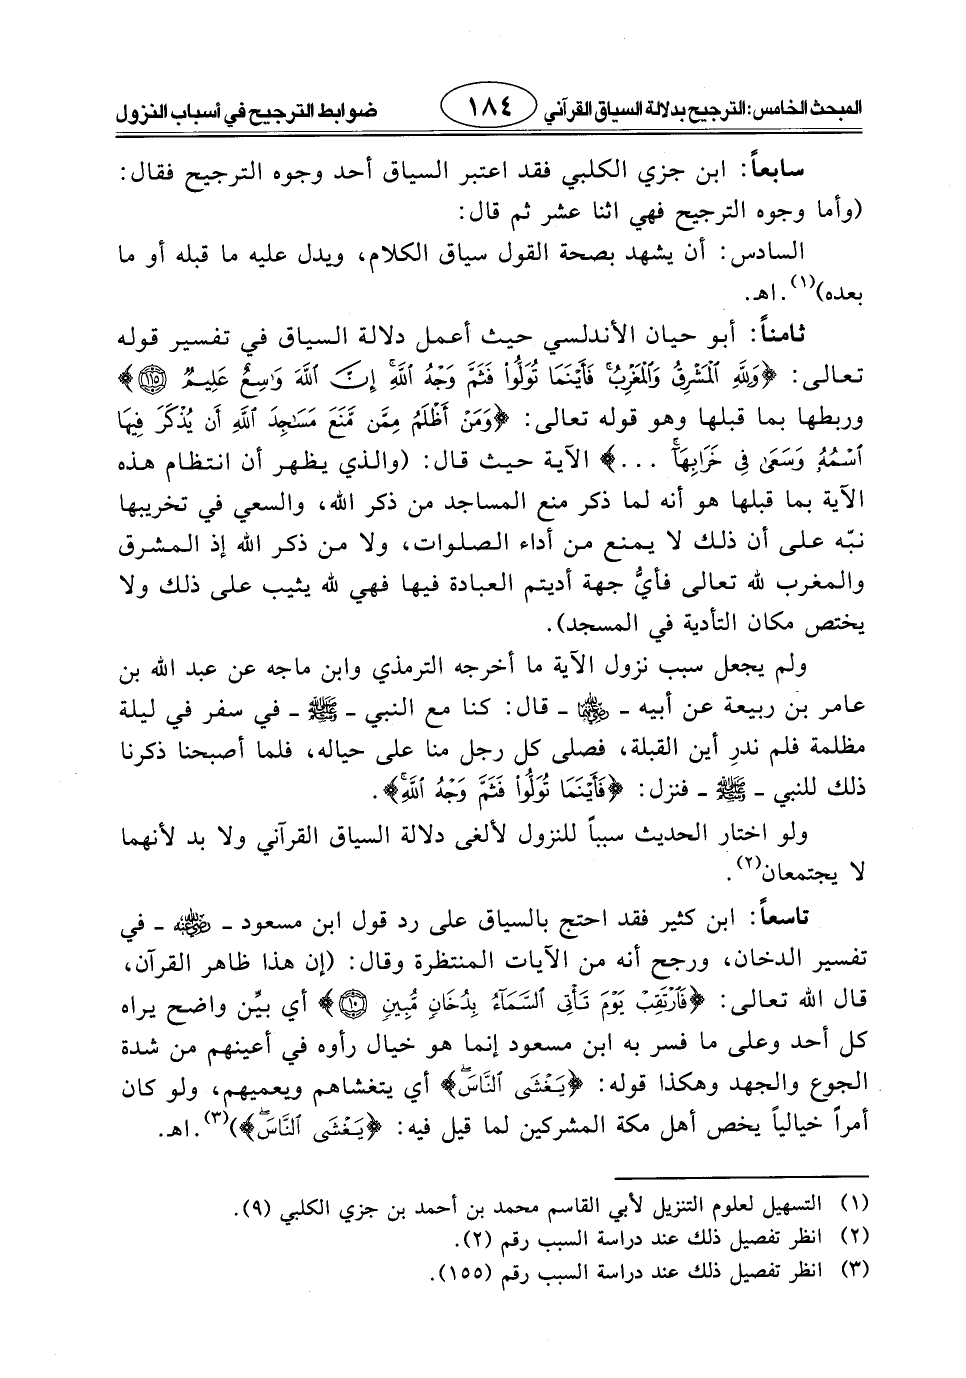 المبحث الخامس: الترجيح بدلالة السياق القرآني ١٨٤ ضوابط الترجيح في أسباب النزول
سابعاً: ابن جزي الكلبي فقد اعتبر السياق أحد وجوه الترجيح فقال:
(وأما وجوه الترجيح فهي اثنا عشر ثم قال:
السادس: أن يشهد بصحة القول سياق الكلام، ويدل عليه ما قبله أو ما
بعده)(١). اهـ.
ثامناً: أبو حيان الأندلسي حيث أعمل دلالة السياق في تفسير قوله
تعالى: ﴿وَلِلَّهِ الْمَشْرِقُ وَالْمَغْرِبُ فَأَيْنَمَا تُوَلُّوا فَثَمَّ وَجْهُ اللَّهِ إِنَّ اللَّهَ وَاسِعٌ عَلِيمٌ ١١٥﴾
وربطها بما قبلها وهو قوله تعالى: ﴿وَمَنْ أَظْلَمُ مِمَّن مَّنَعَ مَسَاجِدَ اللَّهِ أَن يُذْكَرَ فِيهَا
اسْمُهُ وَسَعَى فِي خَرَابِهَا ...﴾ الآية حيث قال: (والذي يظهر أن انتظام هذه
الآية بما قبلها هو أنه لما ذكر منع المساجد من ذكر الله، والسعي في تخريبها
نبّه على أن ذلك لا يمنع من أداء الصلوات، ولا من ذكر الله إذ المشرق
والمغرب لله تعالى فأيُّ جهة أديتم العبادة فيها فهي لله يثيب على ذلك ولا
يختص مكان التأدية في المسجد).
ولم يجعل سبب نزول الآية ما أخرجه الترمذي وابن ماجه عن عبد الله بن
عامر بن ربيعة عن أبيه ـ رضي الله عنه ـ قال: كنا مع النبي ـ ﷺ ـ في سفر في ليلة
مظلمة فلم ندرِ أين القبلة، فصلى كل رجل منا على حياله، فلما أصبحنا ذكرنا
ذلك للنبي ـ ﷺ ـ فنزل: ﴿فَأَيْنَمَا تُوَلُّوا فَثَمَّ وَجْهُ اللَّهِ﴾.
ولو اختار الحديث سبباً للنزول لألغى دلالة السياق القرآني ولا بد لأنهما
لا يجتمعان(٢).
تاسعاً: ابن كثير فقد احتج بالسياق على رد قول ابن مسعود ـ رضي الله عنه ـ في
تفسير الدخان، ورجح أنه من الآيات المنتظرة وقال: (إن هذا ظاهر القرآن،
قال الله تعالى: ﴿فَارْتَقِبْ يَوْمَ تَأْتِي السَّمَاءُ بِدُخَانٍ مُّبِينٍ ١٠﴾ أي بيِّن واضح يراه
كل أحد وعلى ما فسر به ابن مسعود إنما هو خيال رأوه في أعينهم من شدة
الجوع والجهد وهكذا قوله: ﴿يَغْشَى النَّاسَ﴾ أي يتغشاهم ويعميهم، ولو كان
أمراً خيالياً يخص أهل مكة المشركين لما قيل فيه: ﴿يَغْشَى النَّاسَ﴾)(٣). اهـ.
(١) التسهيل لعلوم التنزيل لأبي القاسم محمد بن أحمد بن جزي الكلبي (٩).
(٢) انظر تفصيل ذلك عند دراسة السبب رقم (٢).
(٣) انظر تفصيل ذلك عند دراسة السبب رقم (١٥٥).